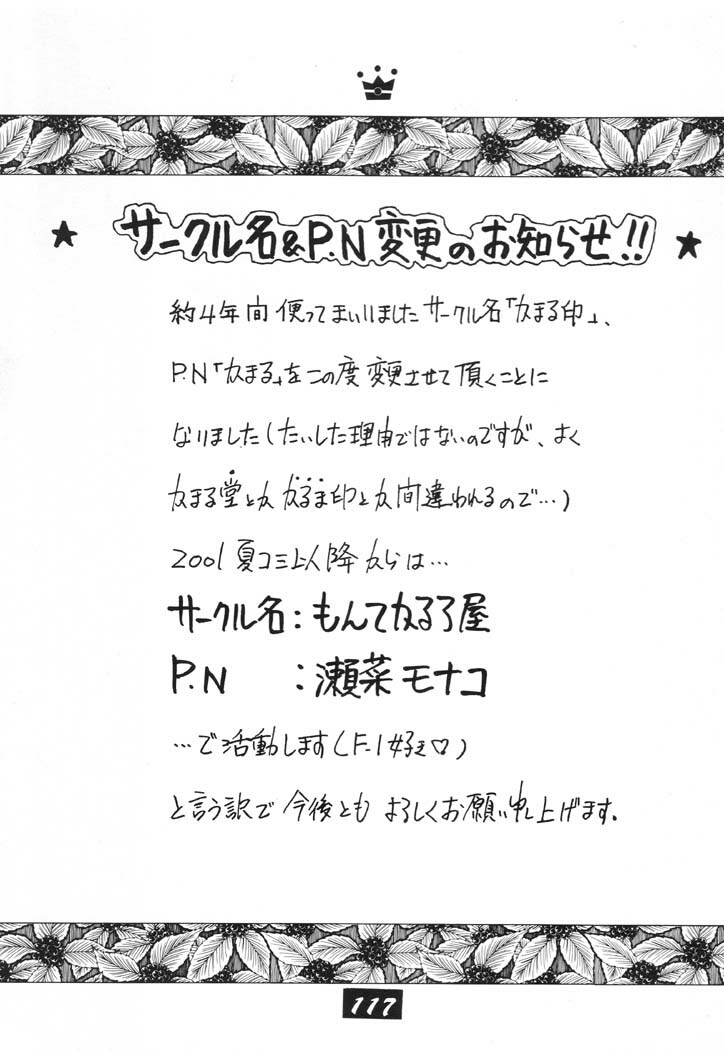 サークル名&P.N変更のお知らせ!!
約4年間使ってまいりましたサークル名「かまる印」、
P.N「かまる」をこの度変更させて頂くことに
なりました(たいした理由ではないのですが、よく
かまる堂とか かるま印とか間違われるので…)
2001夏コミ以降からは…
サークル名:もんてかるろ屋
P.N :瀬菜モナコ
…で活動します(F-1好き♡)
と言う訳で今後とも よろしくお願い申し上げます.
117